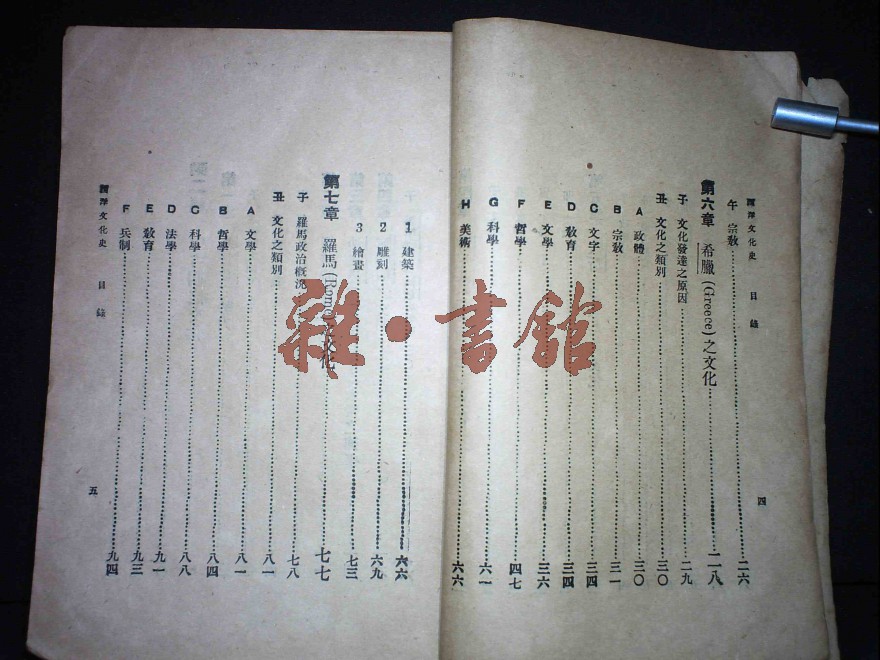 文化史 目錄 四
午 宗教 二六
第六章 希臘(Greece)之文化 二八
子 文化發達之原因 二九
丑 文化之類別 三〇
A 政體 三〇
B 宗教 三一
C 文字 三四
D 教育 三四
E 文學 三六
F 哲學 四七
G 科學 六一
H 美術 六六
1 建築 六六
2 雕刻 六九
3 繪畫 七三
第七章 羅馬(Rome)之文化 七七
子 羅馬政治概況 七八
丑 文化之類別 八一
A 文學 八一
B 哲學 八四
C 科學 八八
D 法學 九一
E 教育 九三
F 兵制 九四
文化史 目錄 五
雜·書館